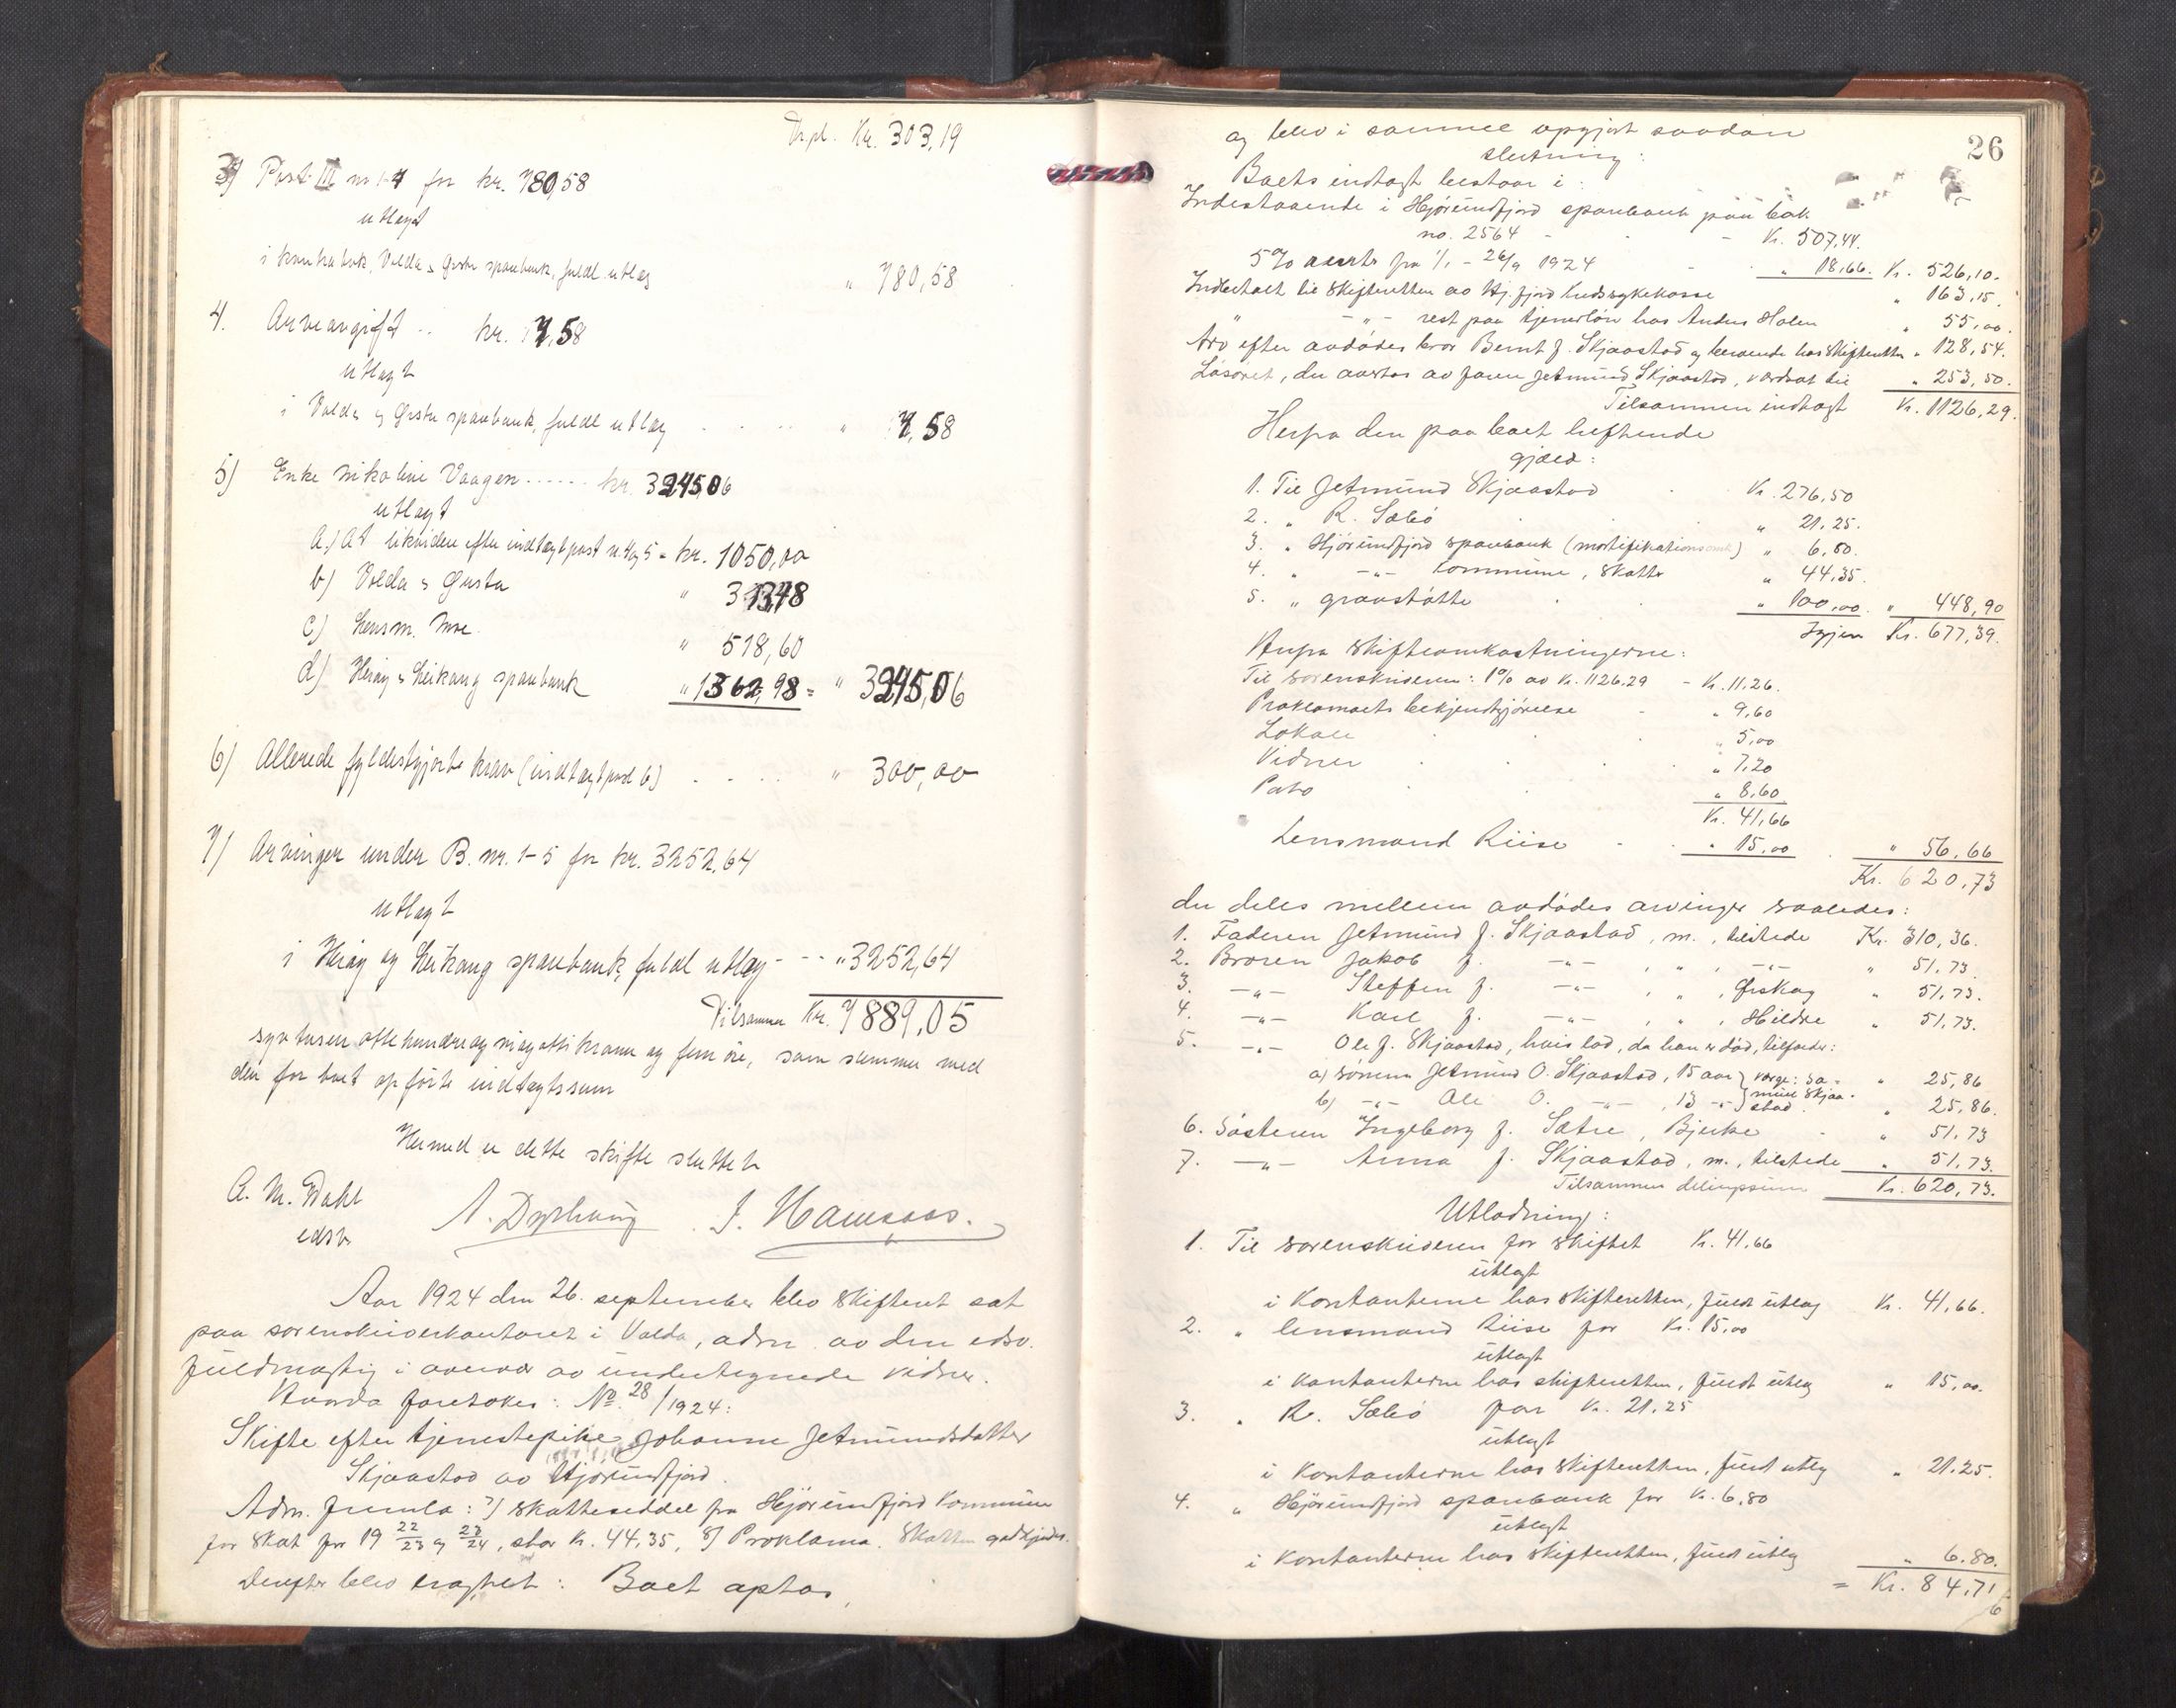 Trpl. Kr. 303,19
3) Post III nr 1-4 for kr. 780,58
utlagt
i kontrabok, Volda & Ørsta sparebank, fuldt utlæg " 780,58
4. Arveavgift .. kr. 7,58
utlagt
i Volda og Ørsta sparebank, fuldt utlæg . . . . " 7,58
5) Enke Nikoline Vaagen ..... kr. 3245,06
utlagt
a.) At likvidere efter indtægtpost n. 4 og 5 = kr. 1050,00
b) Volda & Ørsta " 313,48
c) Lensm. Moe " 518,60
d) Herøy & Leikang sparebank " 1362,98 = " 3245,06
6) Allerede fyldestgjorte krav (indtægtpost 6) . . . . " 300,00
7) Arvinger under B. nr. 1-5 for kr. 3252,64
utlagt
i Herøy og Leikang sparebank, fuldt utlæg - - - " 3252,64
Tilsammen Kr. 7889,05
syv tusen ottehundreogniogotti kroner og fem øre, som stemmer med
den for boet opførte indtægtssum
Hermed er dette skifte sluttet
A. M. Dahl
edsv.
J. Hamsaas.
Aar 1924 den 26. september blev skifteret sat
paa sorenskriverkontoret i Volda, adm. av den edsv.
fuldmægtig i overvær av undertegnede vidner.
Hvorda foretokes: No. 28/1924:
Skifte efter tjenestepike Johanne Jetmundsdatter
Skjaastad av Hjørundfjord.
Adm. fremla: 7) skatteseddel fra Hjørundfjord kommune
for skat for 19 22/23 og 23/24, stor kr. 44,35, 8) Proklama. Skatten godkjendes.
Derefter blev eragtet: Boet optas,
26
og blev i samme opgjort saadan
slutning:
Boets indtægt bestaar i:
Indestaaende i Hjørundfjord sparebank paa bok
no. 2564 - - - Kr. 507,44.
5% rente fra 1/1 - 26/9 1924 - " 18,66. Kr. 526,10.
Indbetalt til skifteretten av Hj.fjord kredssykekasse " 163,15.
" -"- rest paa tjenerløn hos Anders Holen " 55,00.
Arv efter avdødes bror Bernt J. Skjaastad og beroende hos skifteretten " 128,54.
Løsøret, der overtas av faren Jetmund Skjaastad, verdsat til " 253,50.
Tilsammen indtægt Kr. 1126,29.
Herfra den paa boet heftende
gjæld:
1. Til Jetmund Skjaastad . Kr. 276,50
2. " R. Sæbø . . " 21,25.
3. " Hjørundfjord sparebank (mortifikationsomk.) " 6,80.
4. " -"- kommune, skatter " 44,35.
5. " gravstøtte . . " 100,00. " 448,90
Igjen Kr. 677,39.
Herfra skifteomkostningerne:
Til sorenskriveren: 1% av kr. 1126.29 - Kr. 11,26.
Proklamaets bekjendtgjørelse - " 9,60
Lokale . . " 5,00
Vidner . . " 7,20
Porto . . " 8,60
Kr. 41,66
Lensmand Riise - . " 15,00 . " 56,66
Kr. 620,73
der deles mellem avdødes arvinger saaledes:
1. Faderen Jetmund J. Skjaastad, m., tilstede Kr. 310,36.
2. Broren Jakob J. -"- , " , -"- " 51,73.
3. -"- Steffen J. -"- , " , Ørskog " 51,73.
4. -"- Karl J. -"- , " , Hildre " 51,73.
5. -"- Ole J. Skjaastad, hvis lod, da han er død, tilfalder:
a) sønnen Jetmund O. Skjaastad, 15 aar } verge: Sa- " 25,86
b) -"- Ole O. -"- , 13 -"- } muel Skjaa-
stad. " 25,86.
6. Søsteren Ingeborg J. Sætre, Bjerke - " 51,73
7. -"- Anna J. Skjaastad, m., tilstede " 51,73.
Tilsammen delingssum Kr. 620,73.
Utlodning:
1. Til sorenskriveren for skiftet Kr. 41,66
utlagt
i kontanterne hos skifteretten, fuldt utlæg Kr. 41,66.
2. " lensmand Riise for Kr. 15,00
utlagt
i kontanterne hos skifteretten, fuldt utlæg " 15,00.
3. " R. Sæbø for Kr. 21,25
utlagt
i kontanterne hos skifteretten, fuldt utlæg " 21.25.
4. " Hjørundfjord sparebank for Kr. 6,80
utlagt
i kontanterne hos skifteretten, fuldt utlæg " 6.80.
= Kr. 84,71